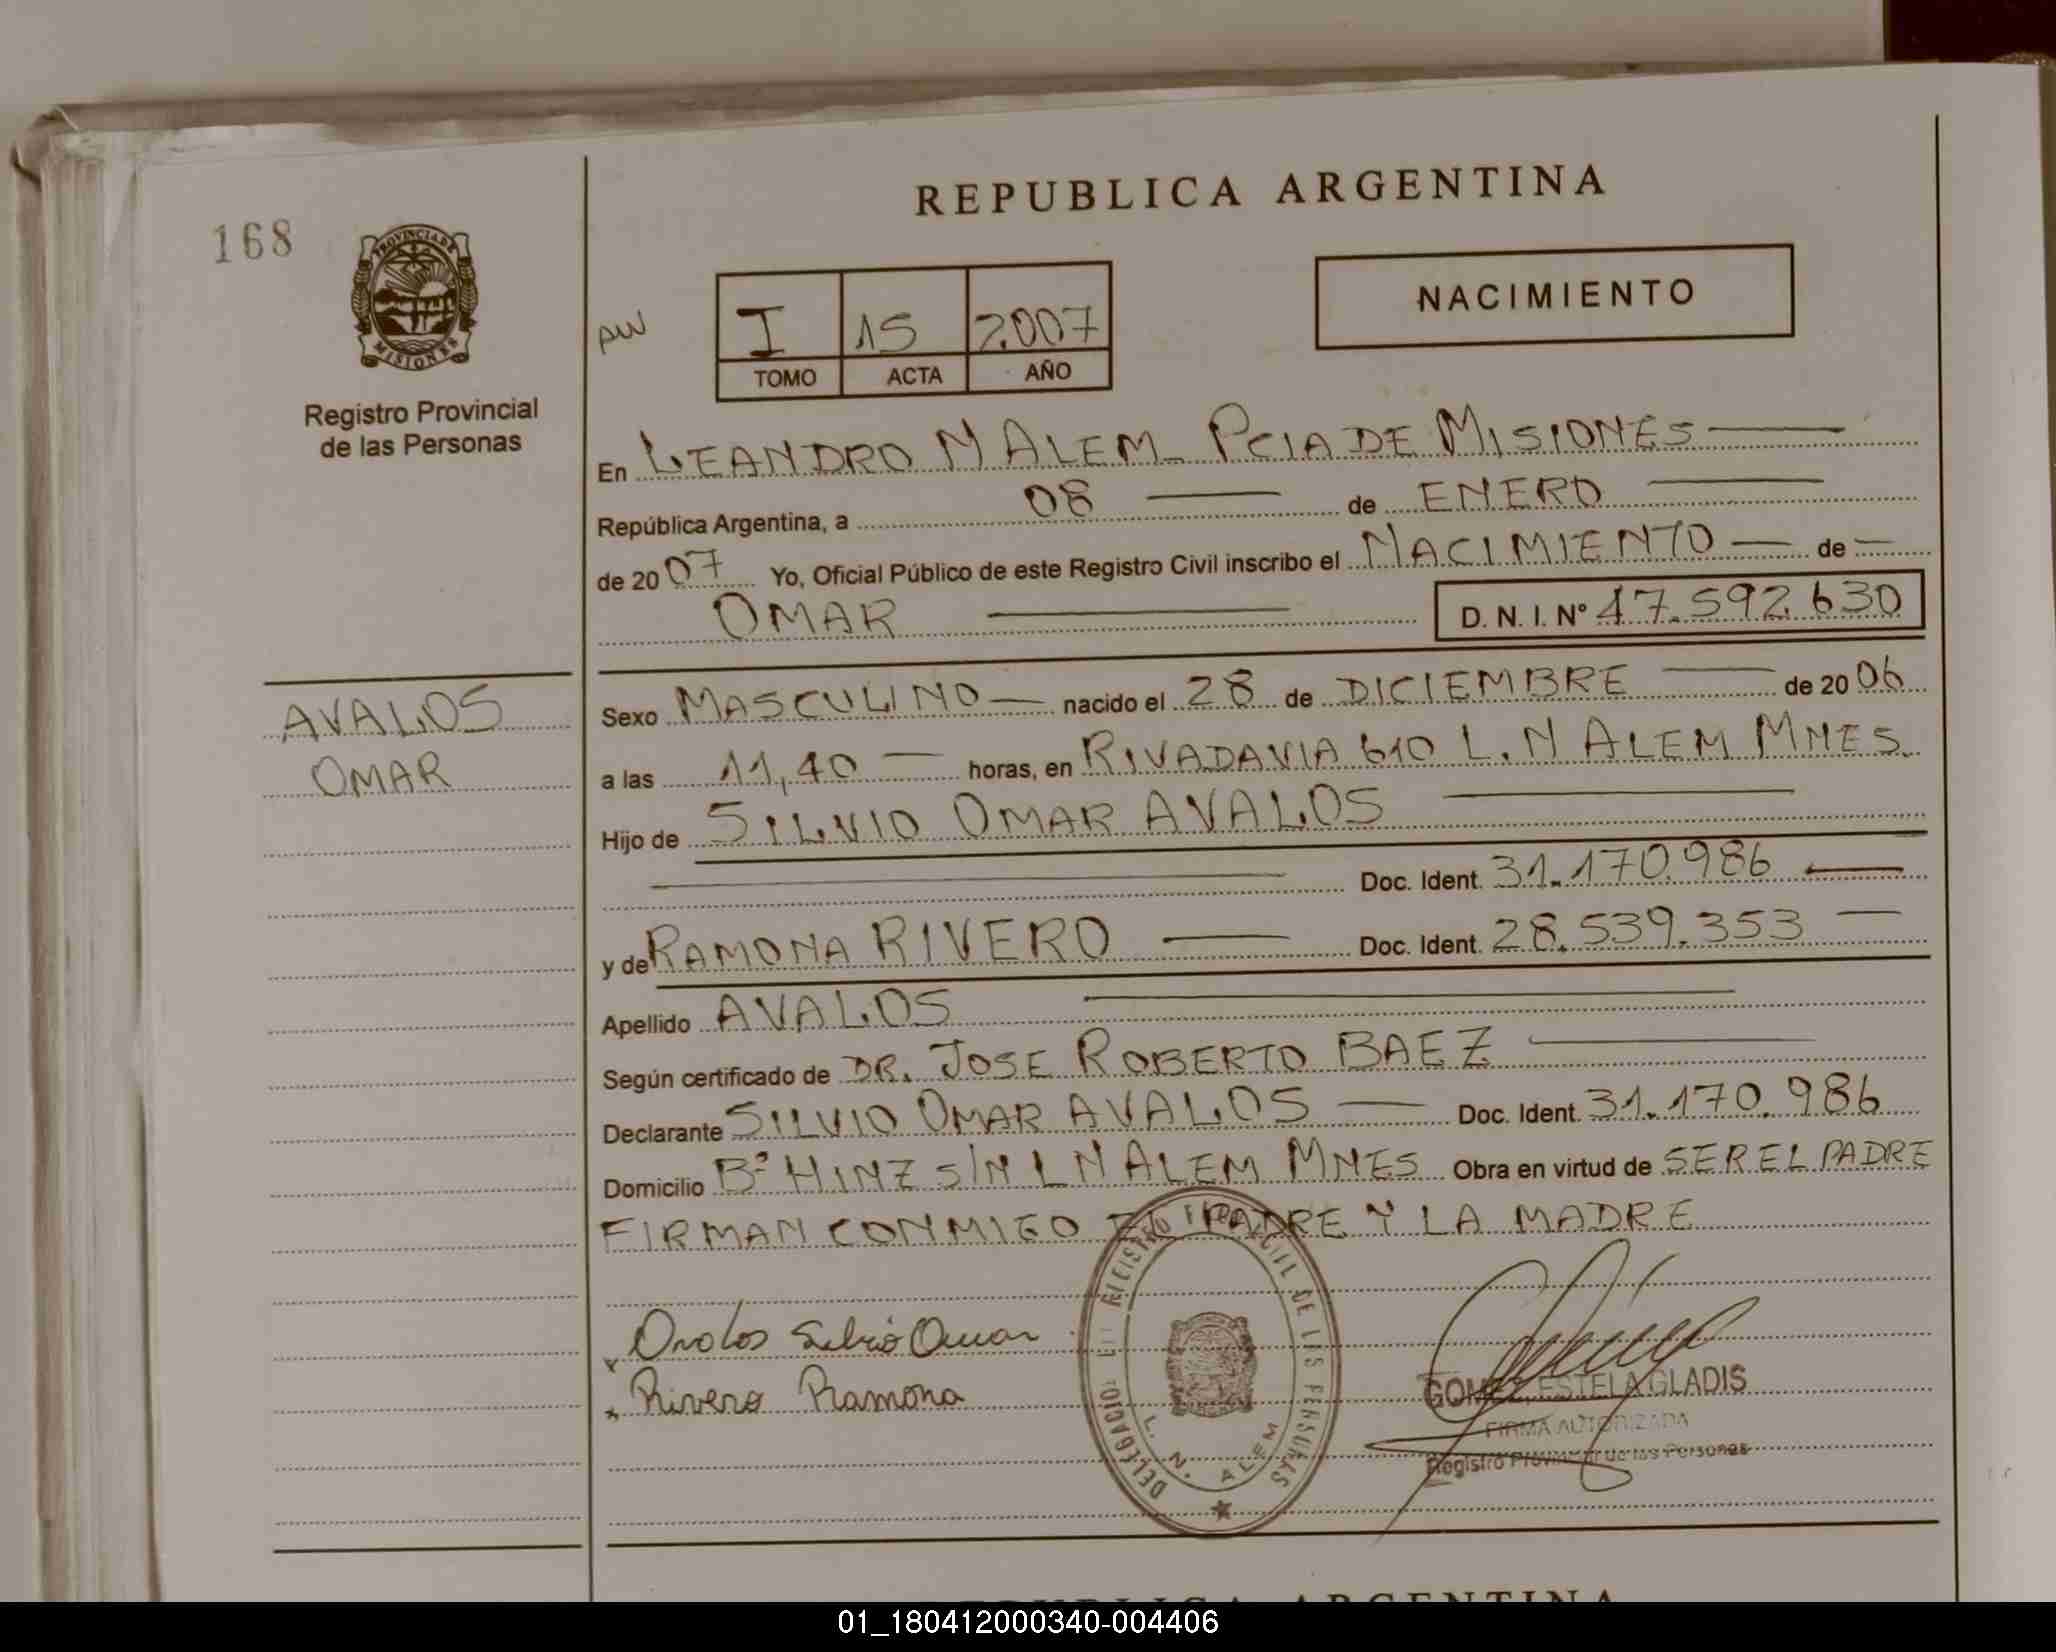 REPUBLICA ARGENTINA
168
PROVINCIA DE
MISIONES
Registro Provincial
de las Personas
NACIMIENTO
I 15 2.007
TOMO ACTA AÑO
En LEANDRO N ALEM PCIA DE MISIONES
República Argentina, a 08 de ENERO
de 2007 Yo, Oficial Público de este Registro Civil inscribo el NACIMIENTO de
OMAR
D. N. I. Nº 47.592.630
AVALOS
OMAR
Sexo MASCULINO nacido el 28 de DICIEMBRE de 2006
a las 11,40 horas, en RIVADAVIA 610 L. N ALEM MNES.
Hijo de SILVIO OMAR AVALOS
Doc. Ident. 31.170.986
y de RAMONA RIVERO Doc. Ident. 28.539.353
Apellido AVALOS
Según certificado de DR. JOSE ROBERTO BAEZ
Declarante SILVIO OMAR AVALOS Doc. Ident. 31.170.986
Domicilio Bº HINZ S/N L N ALEM MNES Obra en virtud de SER EL PADRE
FIRMAN CONMIGO EL PADRE Y LA MADRE
Avalos Silvio Omar
Rivero Ramona
DE LAS PERSONAS
L. N. ALEM
GOMEZ, ESTELA GLADIS
FIRMA AUTORIZADA
Registro Provincial de las Personas
REPUBLICA ARGENTINA
01_180412000340-004406